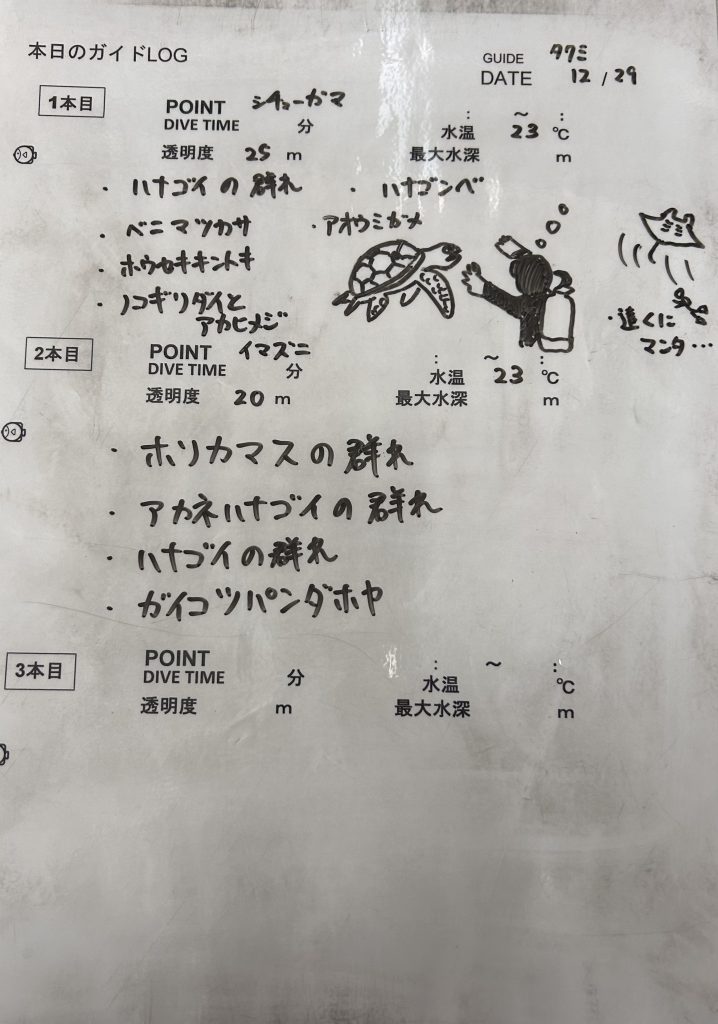 本日のガイドLOG
GUIDE タクミ
DATE 12/29
1本目
POINT シチューガマ
DIVE TIME 分 : ~ :
水温 23 ℃
透明度 25 m 最大水深 m
・ハナゴイの群れ ・ハナゴンベ
・ベニマツカサ ・アオウミガメ
・ホウセキキントキ
・ノコギリダイと
アカヒメジ
・遠くに
マンタ…
2本目
POINT イマズニ
DIVE TIME 分 : ~ :
水温 23 ℃
透明度 20 m 最大水深 m
・ホソカマスの群れ
・アカネハナゴイの群れ
・ハナゴイの群れ
・ガイコツパンダホヤ
3本目
POINT
DIVE TIME 分 : ~ :
水温 ℃
透明度 m 最大水深 m